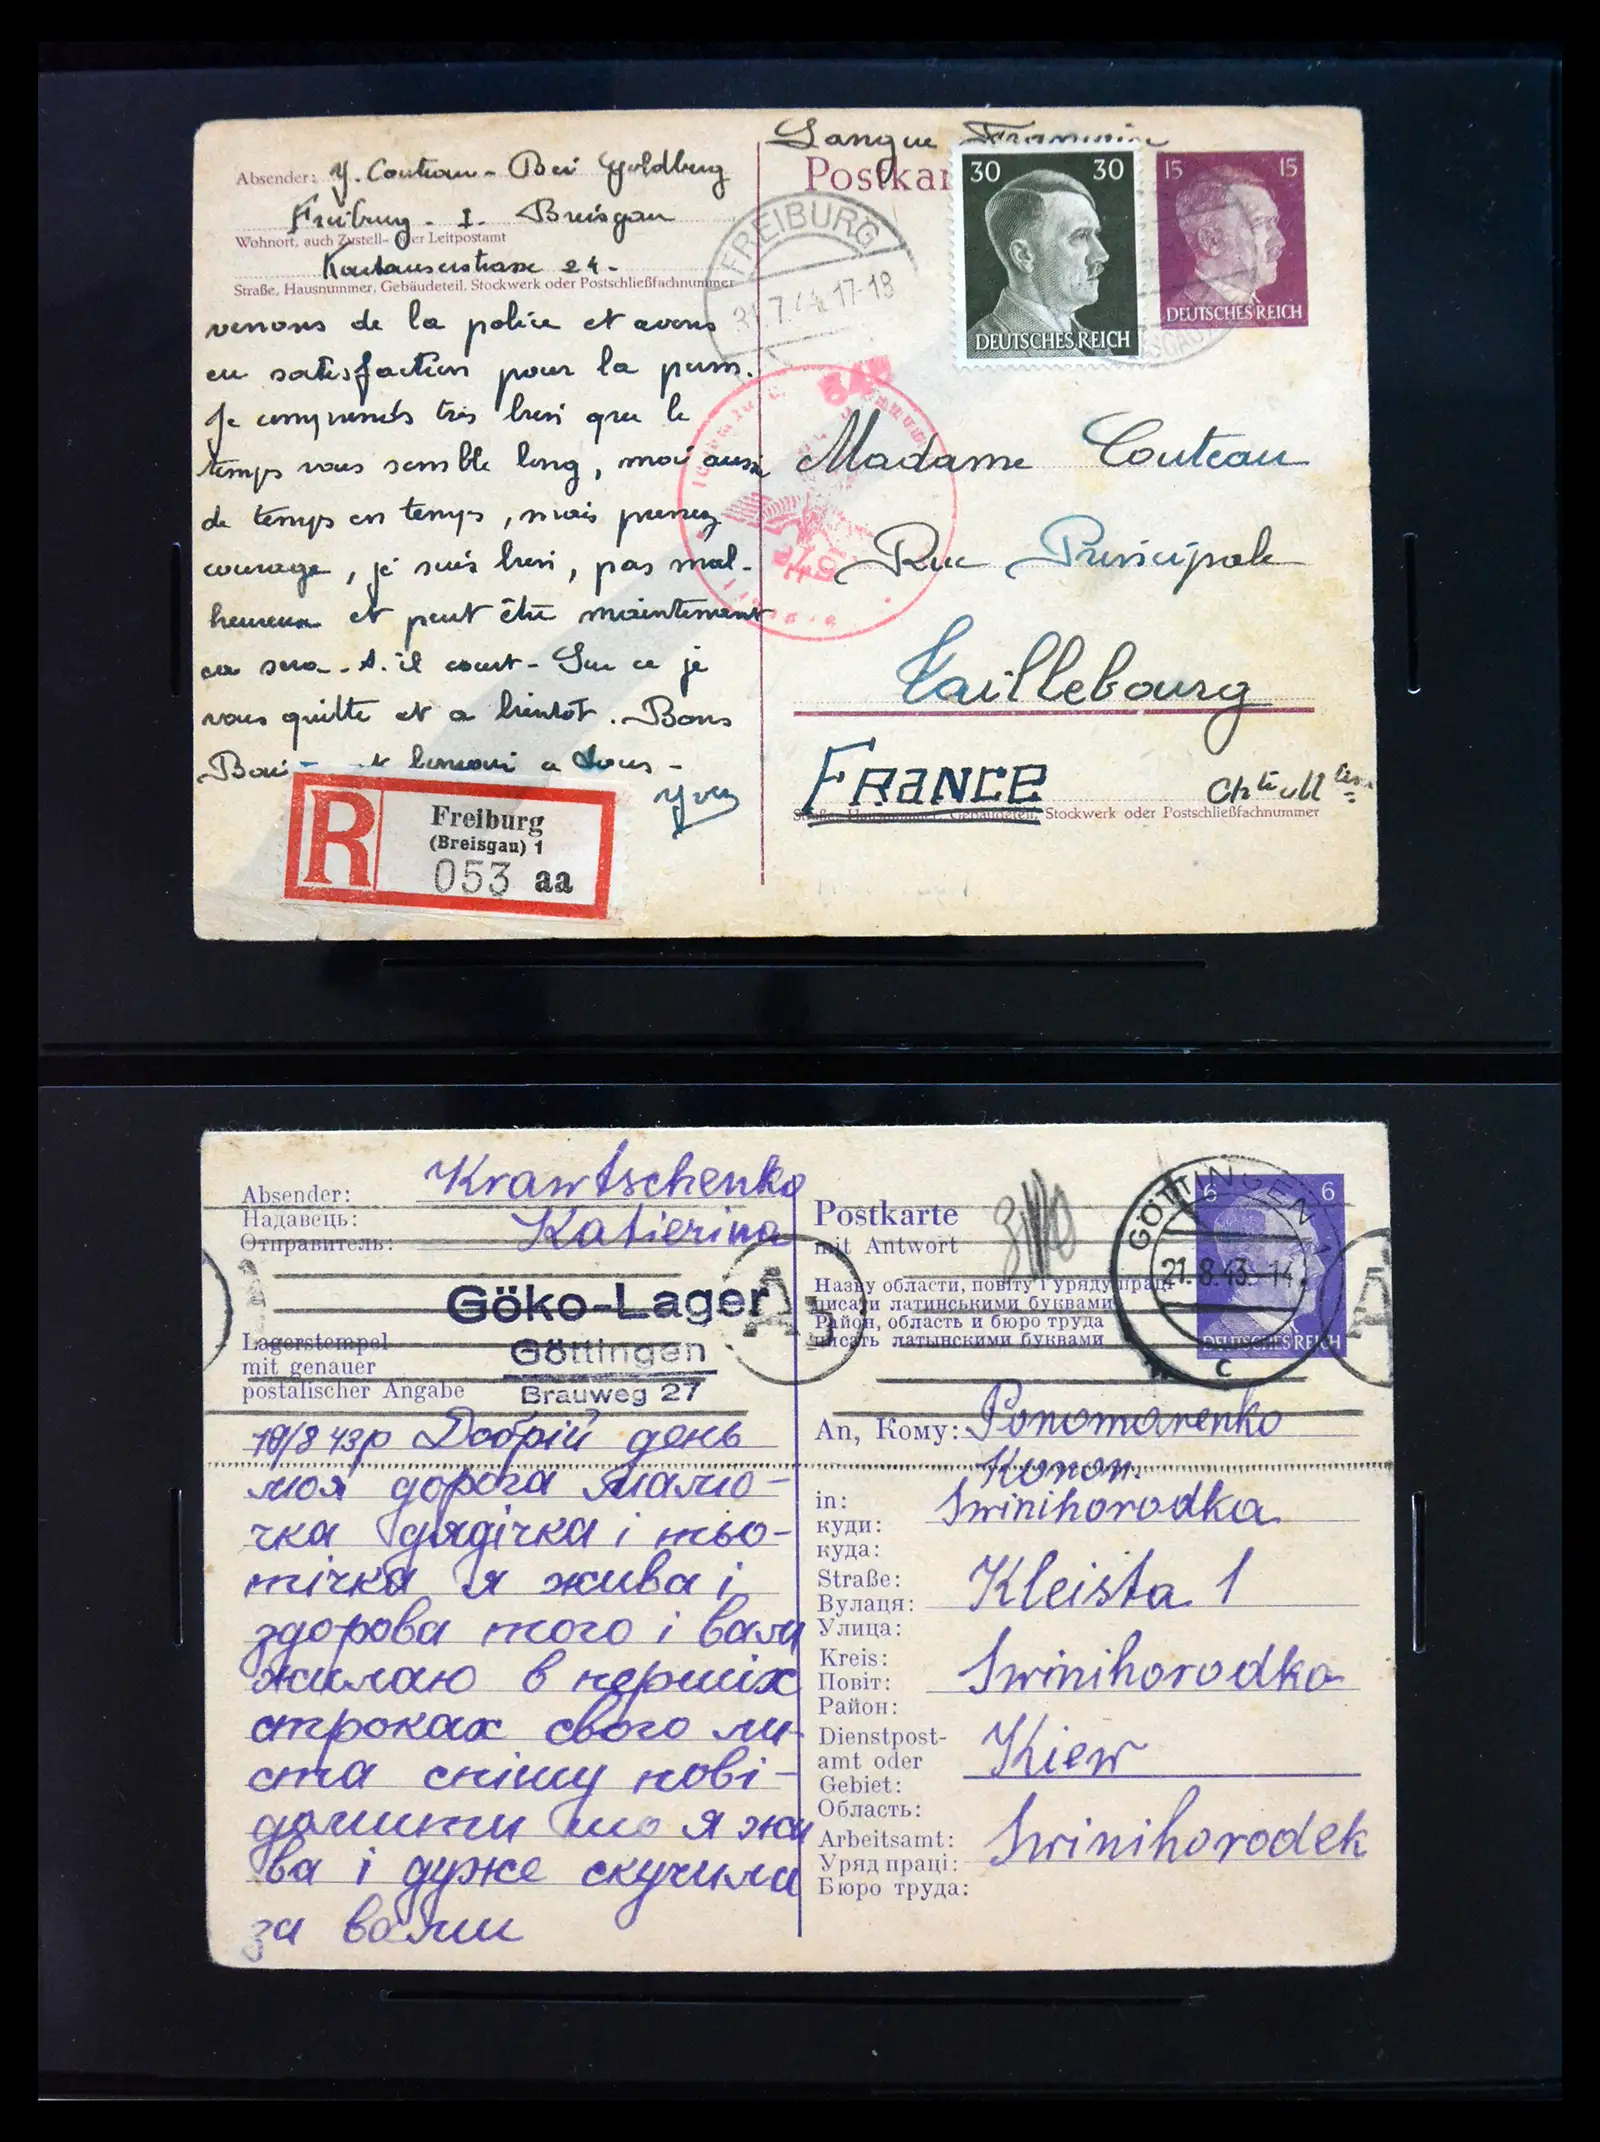 Langue Française
Absender: Y. Couteau - Bei Goldberg
Freiburg - I. Breisgau
Wohnort, auch Zustell- oder Leitpostamt
Kartauserstrasse 24 -
Straße, Hausnummer, Gebäudeteil, Stockwerk oder Postschließfachnummer
venons de la police et avons
eu satisfaction pour la perm.
Je comprends très bien que le
temps vous semble long, moi aussi
de temps en temps, mais prenez
courage, je suis bien, pas mal-
heureux et peut être maintenant
ça sera-t-il court - Sur ce je
vous quitte et a bientôt. Bons
a tous -
Yves
R
Freiburg
(Breisgau) 1
053 aa
Postkar
FREIBURG
31.7.44.17-18
30 30
DEUTSCHES REICH
15 15
DEUTSCHES REICH
Madame Couteau
Rue Principale
Taillebourg
FRANCE
Straße, Hausnummer, Gebäudeteil, Stockwerk oder Postschließfachnummer
Absender: Krawtschenko
Надавець: Katierina
Отправитель:
Göko-Lager
Göttingen
Brauweg 27
Lagerstempel
mit genauer
postalischer Angabe
18/8 43р Добрій день
моя дорога мамо-
чка дядічка і тьо-
тічка я жива і
здорова того і вам
жилаю в перших
строках свого ли-
ста спішу пові-
домити шо я жи
ва і дуже скучила
за вами
Postkarte
mit Antwort
Назву области, повіту і уряду праці
писати латинськими буквами
Район, область и бюро труда
писать латынскими буквами
GÖTTINGEN 1
21.8.43.-14
c
6 6
DEUTSCHES REICH
An, Кому: Ponomarenko
Konon.
in: Swinihorodka
куди:
куда:
Straße: Kleista 1
Вулаця:
Улица:
Kreis: Swinihorodka
Повіт:
Район:
Dienstpost- Kiew
amt oder
Gebiet:
Область:
Arbeitsamt: Swinihorodek
Уряд праці:
Бюро труда: